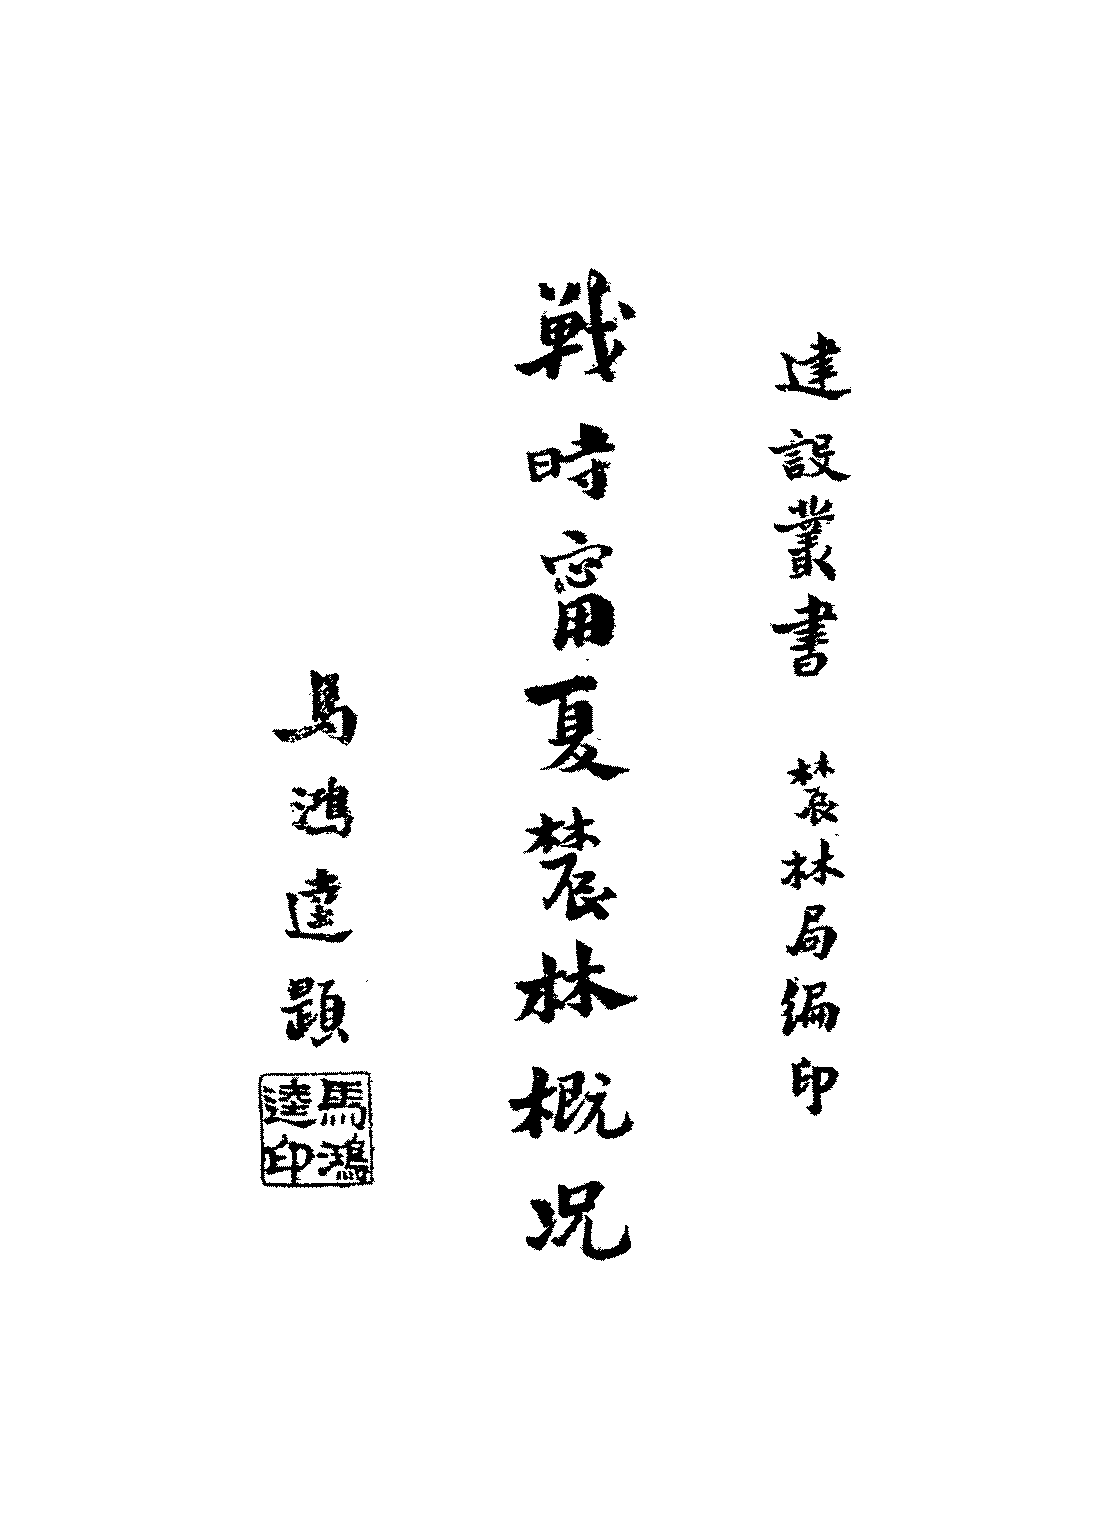 建設叢書　辳林局編印
戰時甯夏辳林概況
馬鴻逵題
馬鴻逵印